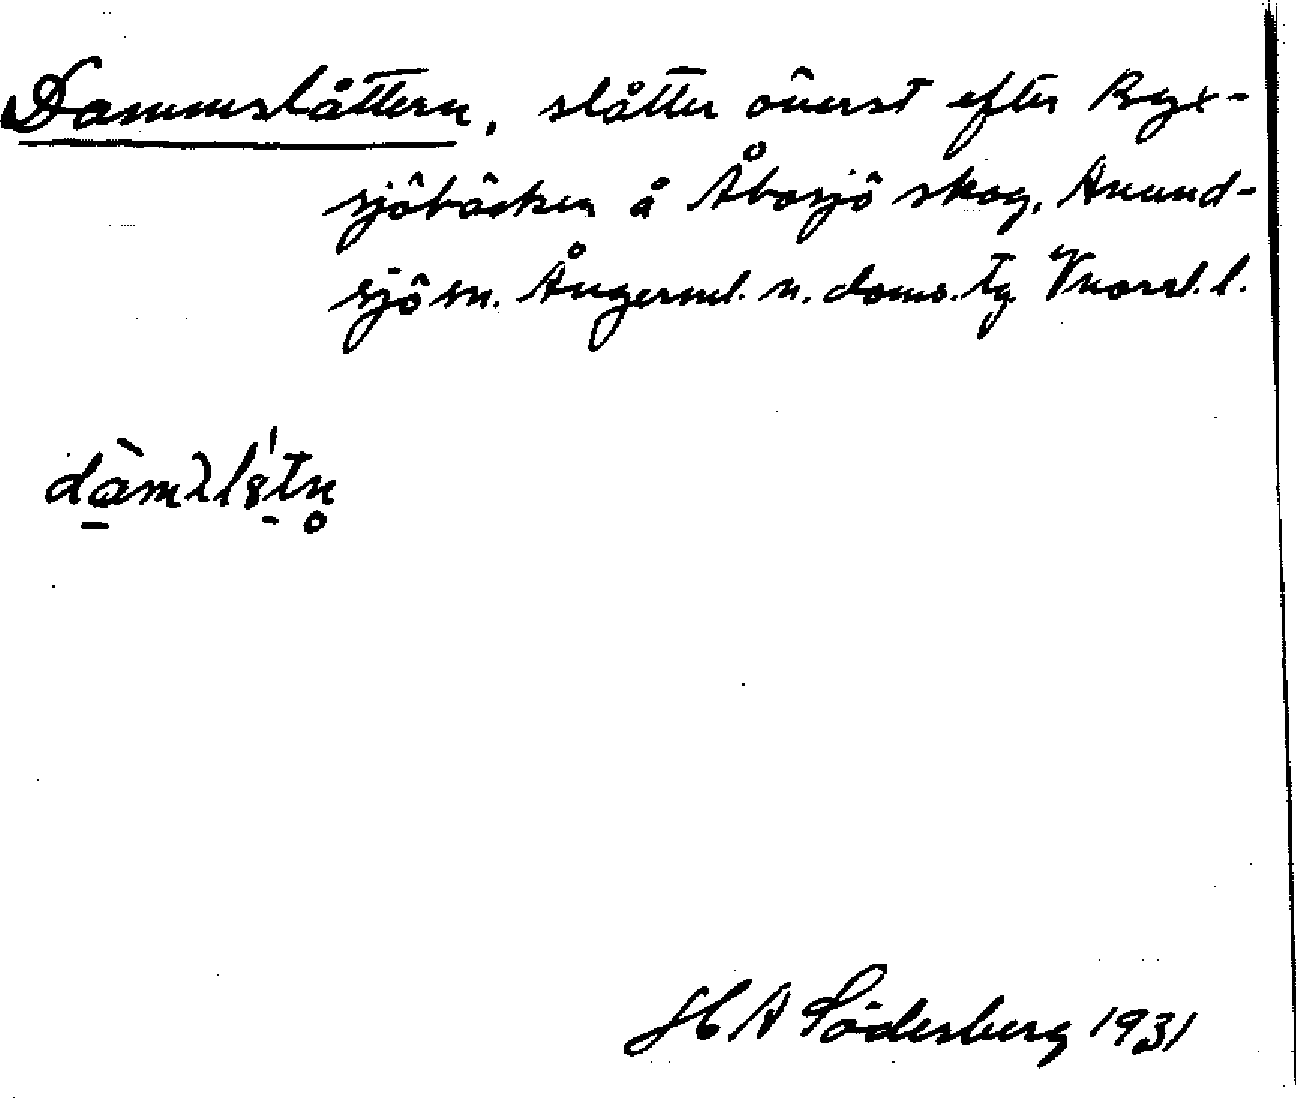 Dammslåttern, slåtter överst efter Ryx-
sjöbäcken å Åbosjö skog, Anund-
sjö sn. Ångerml. n. doms. tg Vnorrl. l.
H A Söderberg 1931